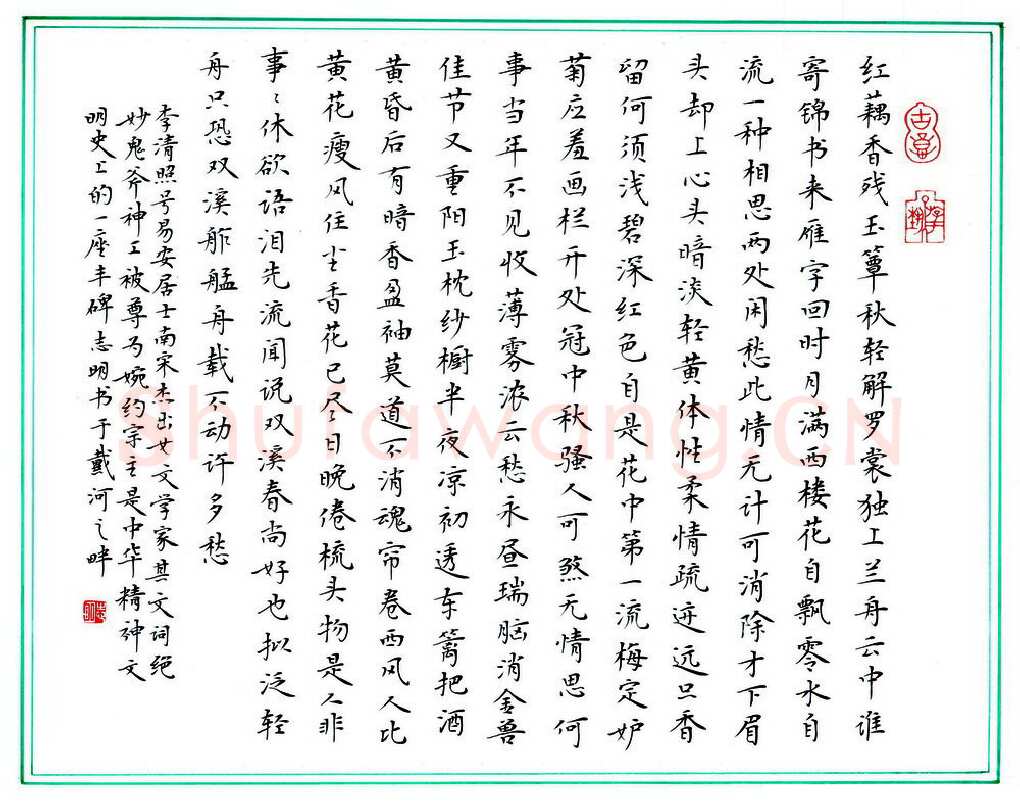 红藕香残玉簟秋轻解罗裳独上兰舟云中谁
寄锦书来雁字回时月满西楼花自飘零水自
流一种相思两处闲愁此情无计可消除才下眉
头却上心头暗淡轻黄体性柔情疏迹远只香
留何须浅碧深红色自是花中第一流梅定妒
菊应羞画栏开处冠中秋骚人可煞无情思何
事当年不见收薄雾浓云愁永昼瑞脑消金兽
佳节又重阳玉枕纱橱半夜凉初透东篱把酒
黄昏后有暗香盈袖莫道不消魂帘卷西风人比
黄花瘦风住尘香花已尽日晚倦梳头物是人非
事〻休欲语泪先流闻说双溪春尚好也拟泛轻
舟只恐双溪舴艋舟载不动许多愁
李清照号易安居士南宋杰出女文学家其文词绝
妙鬼斧神工被尊为婉约宗主是中华精神文
明史上的一座丰碑志明书于戴河之畔
Shufawang.CN